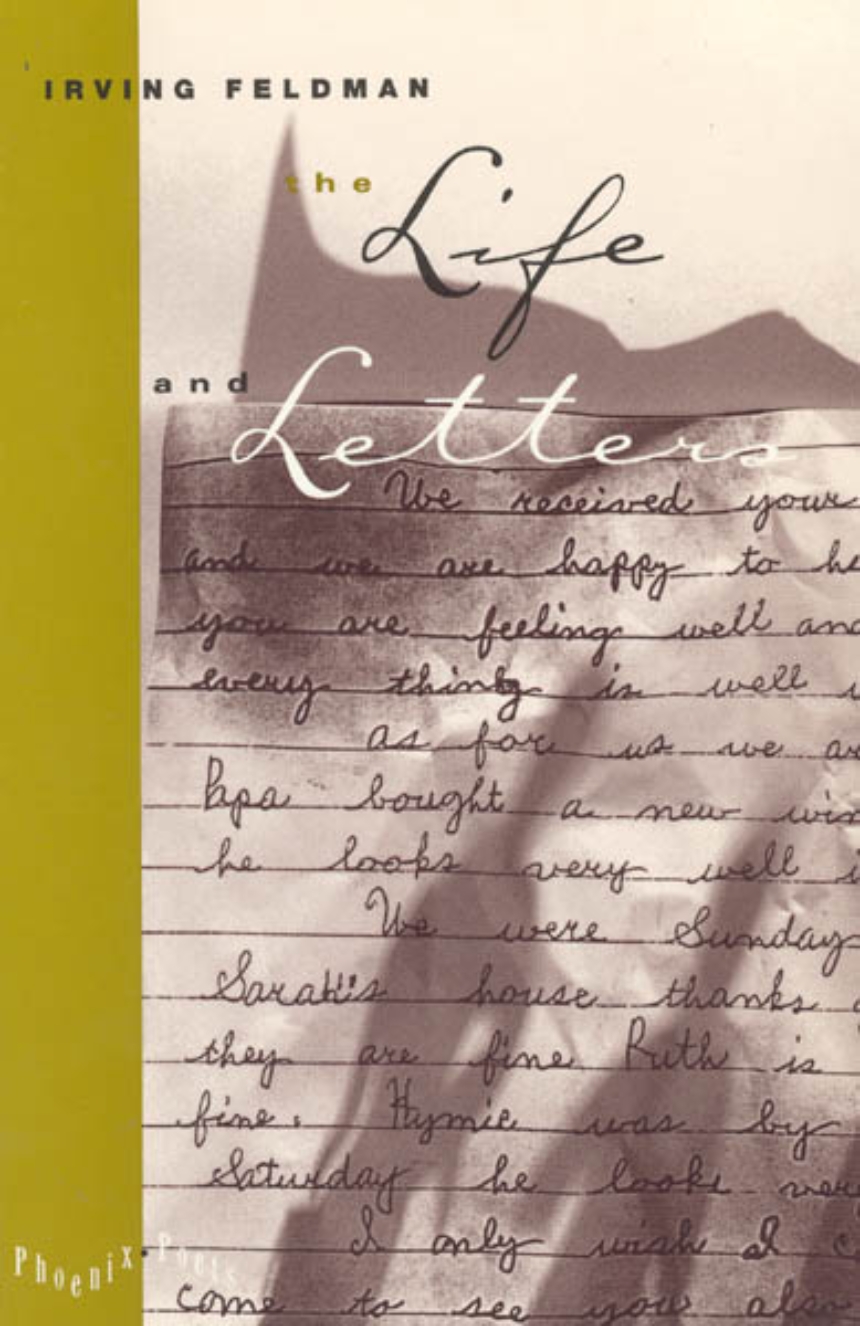 IRVING FELDMAN
the Life
and Letters
We received your
and we are happy to he
you are feeling well and
every thing is well
as for us we ar
Papa bought a new win
he looks very well i
We were Sunday
Sarah's house thanks
they are fine Ruth is
fine. Hymie was by
Saturday he looks very
I only wish I c
come to see you also
Phoenix Poets